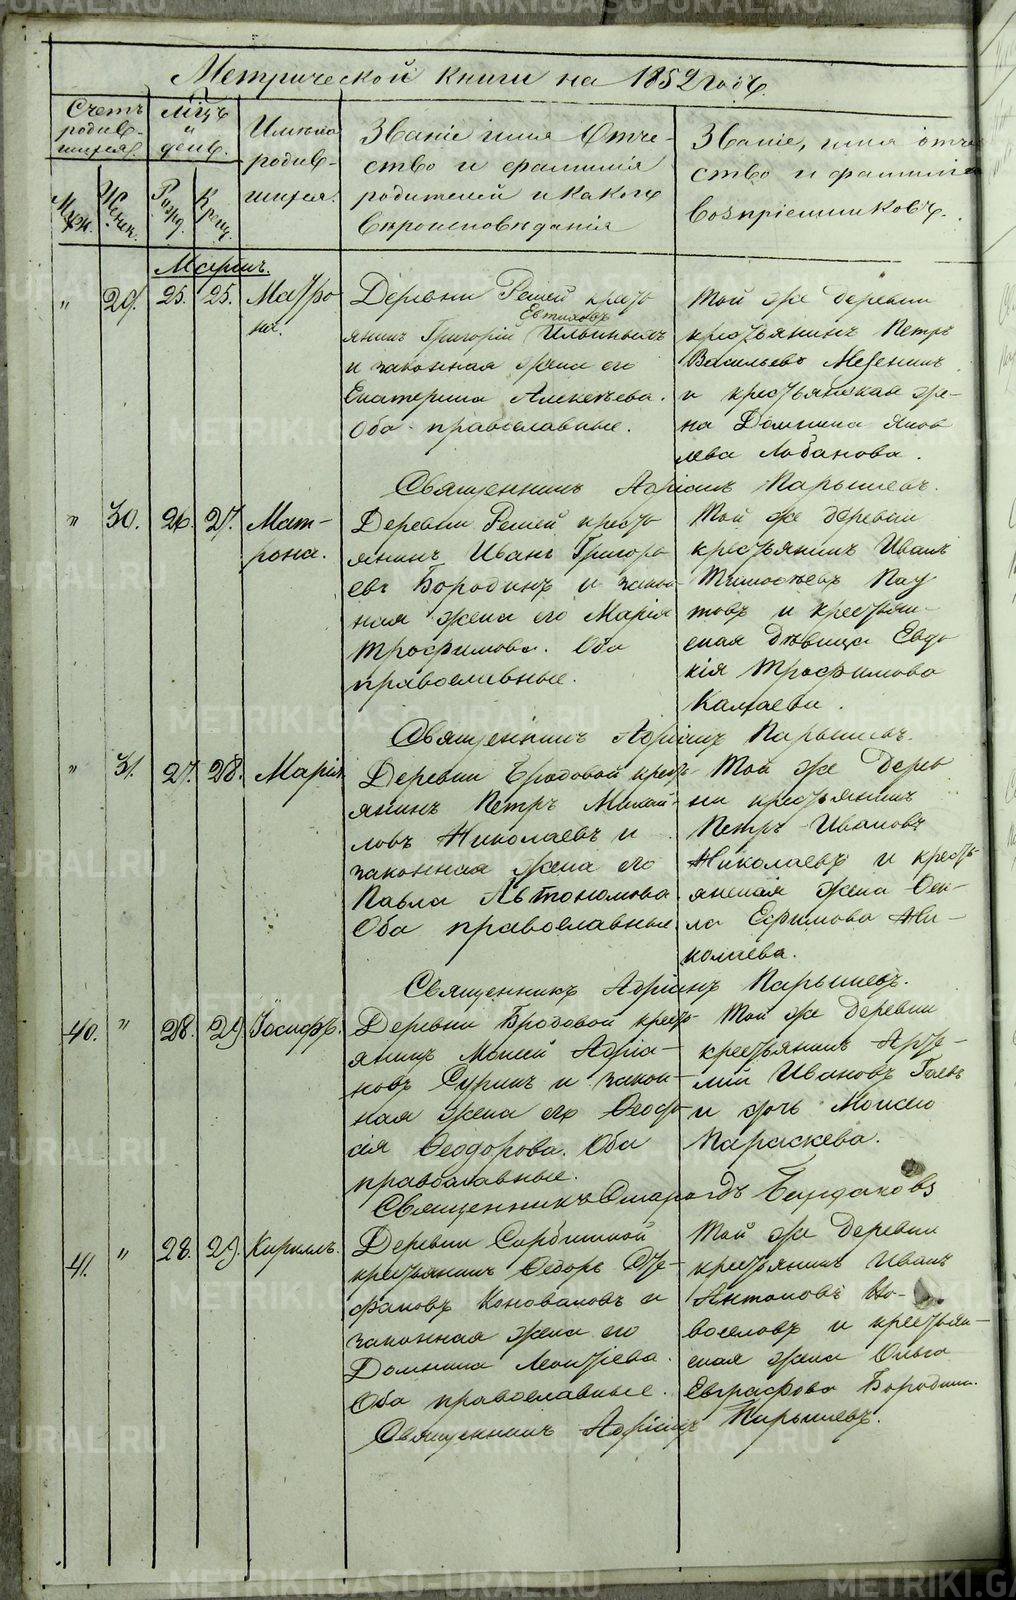 Метрической книги на 1852 годъ.
Счетъ родив-шихся.
Мѣсяцъ и день.
Имена родив-шихся.
Званіе имя Отче-
ство и фамилія
родителей и какого
вѣроисповѣданія
Званіе, имя и отче
ство и фамилія
воспріемниковъ.
Муж.
Женск.
Рожд.
Крещ.
Мартъ.
" 29. 25. 25. Матро
на.
Деревни Рѣшей кресть
Евтихіевъ
янинъ Григорій Ильиныхъ
и законная жена его
Екатерина Алексѣева.
Оба православные.
Той же деревни
крестьянинъ Петръ
Васильевъ Мезенинъ
и крестьянская же-
на Домнина Яков
лева Лобанова.
Священникъ Адріанъ Парышевъ.
" 30. 26. 27. Мат-
рона.
Деревни Рѣшей кресть
янинъ Иванъ Григорь
евъ Бородинъ и закон
ная жена его Марія
Трофимова. Оба
православные.
Той же деревни
крестьянинъ Иванъ
Тимофеевъ Пау
товъ и крестьян-
ская дѣвица Евдо
кія Трофимова
Священникъ Адріанъ Парышевъ.
" 31. 27. 28. Марія
Деревни Бродовой кресть-
янинъ Петръ Михай-
ловъ Николаевъ и
законная жена его
Павла Автономова
Оба православные.
Той же дерев
ни крестьянинъ
Петръ Ивановъ
Николаевъ и кресть-
янская жена Фек-
ла Ефимова Ни-
колаева.
Священникъ Адріанъ Парышевъ.
40. " 28. 29. Іосифъ.
Деревни Бродовой кресть-
янинъ Моисей Адріа-
новъ Суринъ и закон-
ная жена его Феодо
сія Феодорова. Оба
православные.
Той же деревни
крестьянинъ Арте-
мій Ивановъ Гаевъ
и дочь Моисея
Параскева.
Священникъ Смарагдъ Бирдаковъ
41. " 28. 29. Кириллъ.
Деревни Сарбишной
крестьянинъ Федоръ Сте-
фановъ Коноваловъ и
законная жена его
Домнина Леонтіева.
Оба православные.
Той же деревни
крестьянинъ Иванъ
Антоновъ Но-
воселовъ и крестьян-
ская жена Ольга
Евграфова Бородина.
Священникъ Адріанъ Парышевъ.